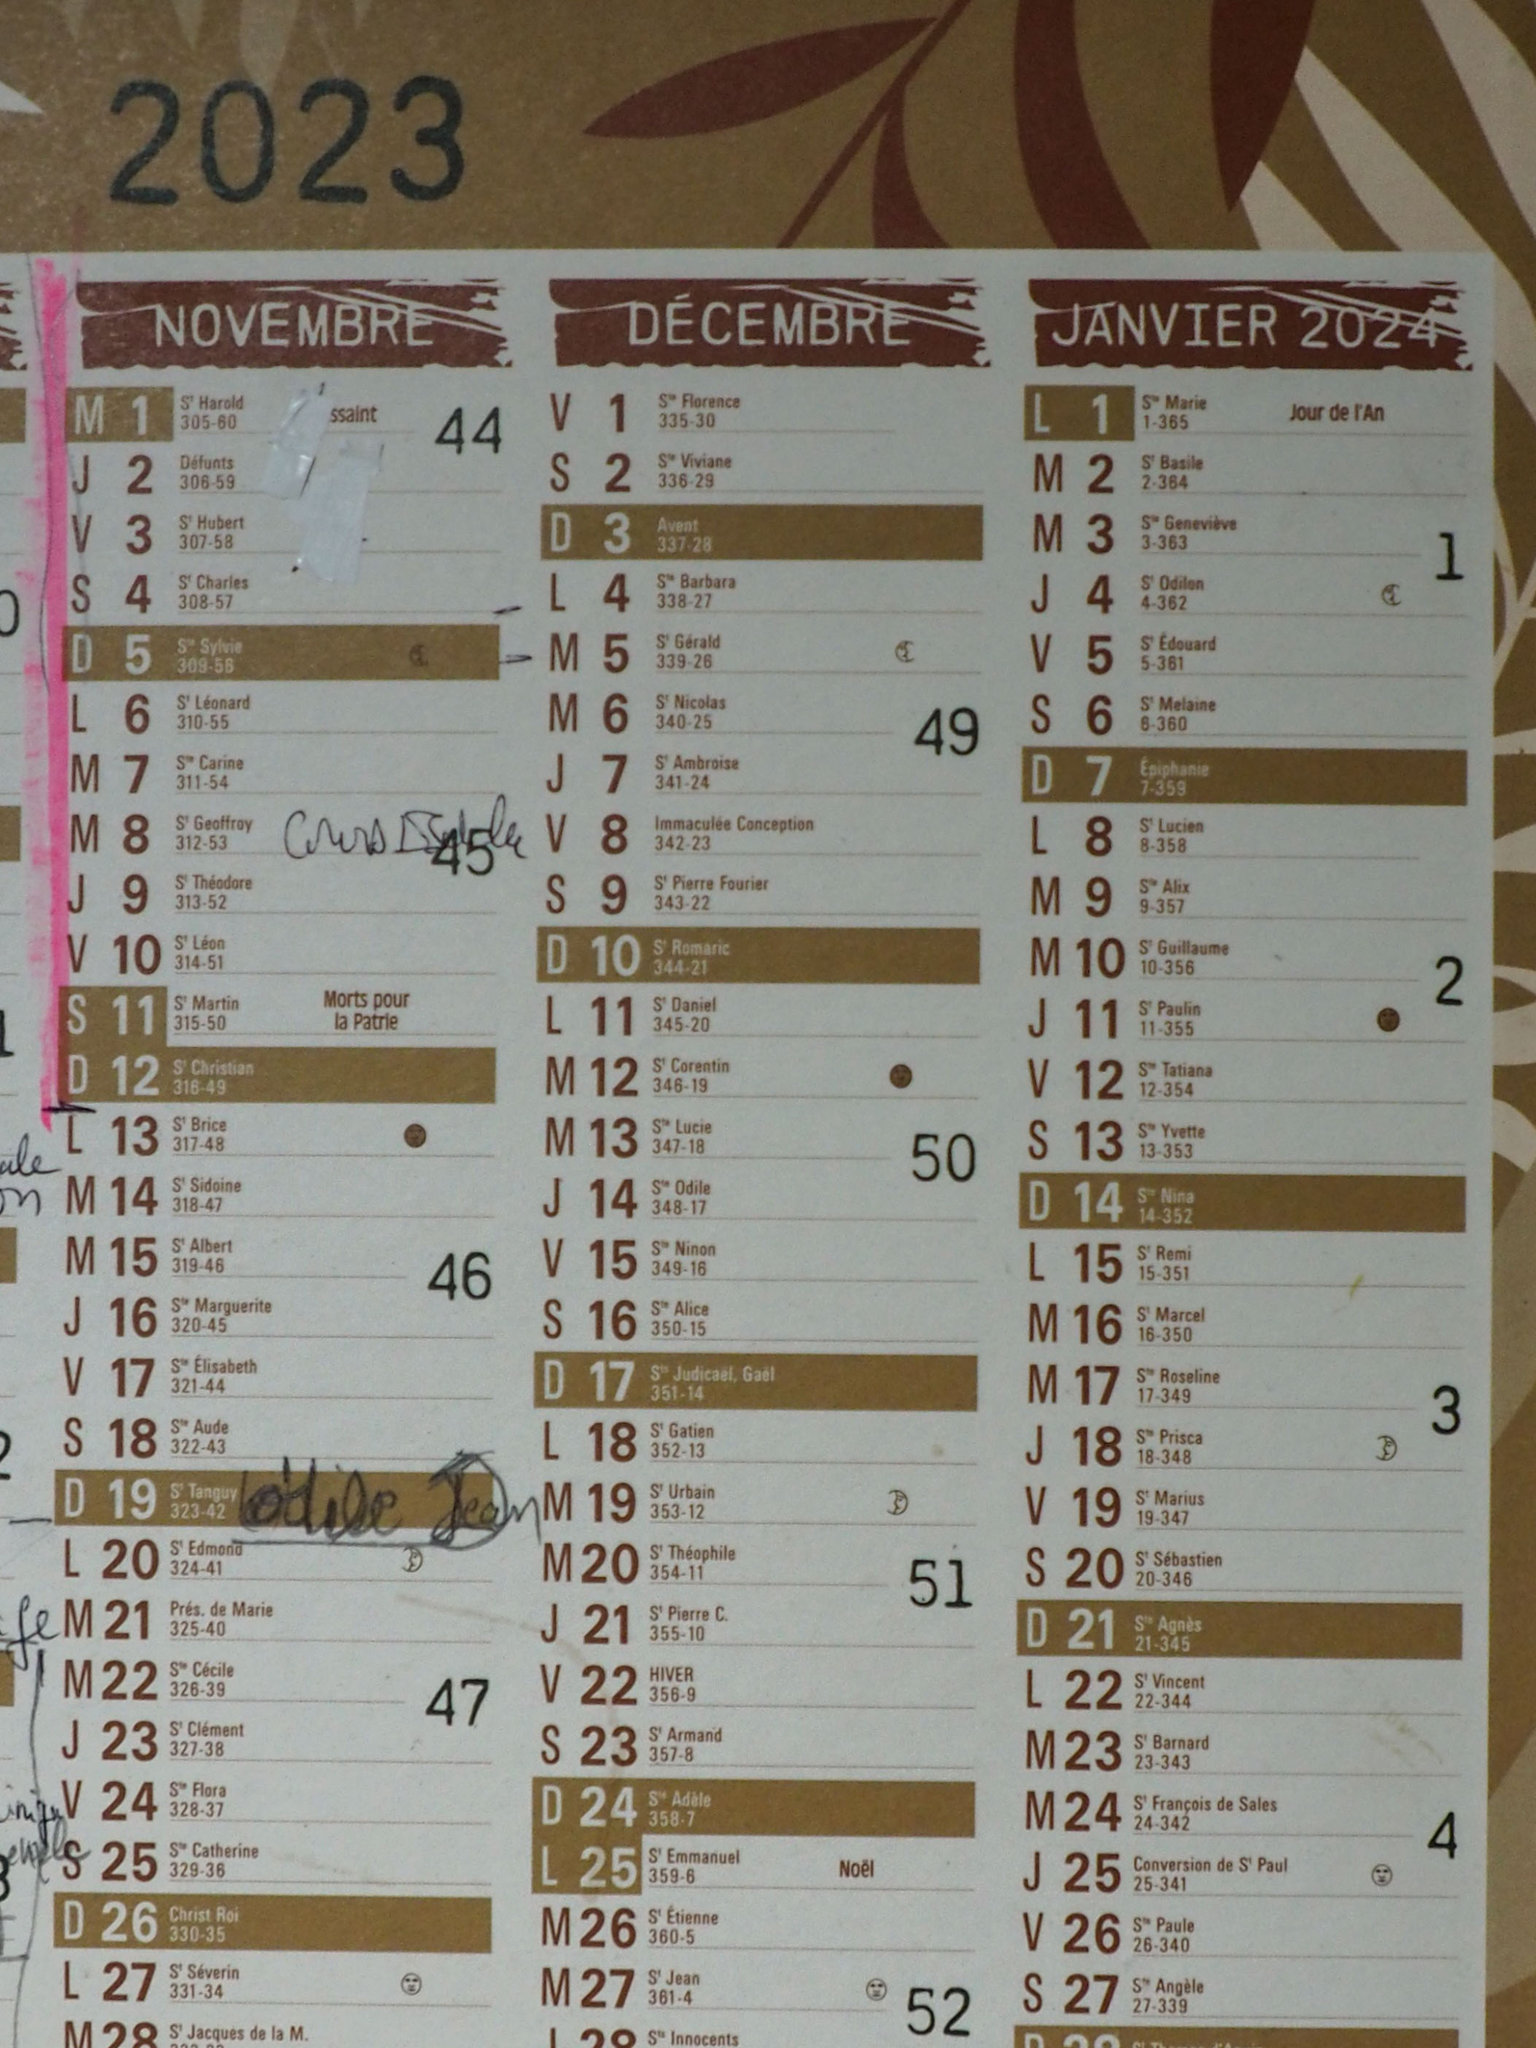 2023
NOVEMBRE
M 1 St Harold 305-60 ssaint 44
J 2 Défunts 306-59
V 3 St Hubert 307-58
S 4 St Charles 308-57
D 5 Ste Sylvie 309-56
L 6 St Léonard 310-55
M 7 Ste Carine 311-54
M 8 St Geoffroy 312-53 Cours 45
J 9 St Théodore 313-52
V 10 St Léon 314-51
S 11 St Martin 315-50 Morts pour la Patrie
D 12 St Christian 316-49
L 13 St Brice 317-48
M 14 St Sidoine 318-47
M 15 St Albert 319-46 46
J 16 Ste Marguerite 320-45
V 17 Ste Élisabeth 321-44
S 18 Ste Aude 322-43
D 19 St Tanguy 323-42 Odile Jean
L 20 St Edmond 324-41
M 21 Prés. de Marie 325-40
M 22 Ste Cécile 326-39 47
J 23 St Clément 327-38
V 24 Ste Flora 328-37
S 25 Ste Catherine 329-36
D 26 Christ Roi 330-35
L 27 St Séverin 331-34
M 28 St Jacques de la M.
DÉCEMBRE
V 1 Ste Florence 335-30
S 2 Ste Viviane 336-29
D 3 Avent 337-28
L 4 Ste Barbara 338-27
M 5 St Gérald 339-26
M 6 St Nicolas 340-25 49
J 7 St Ambroise 341-24
V 8 Immaculée Conception 342-23
S 9 St Pierre Fourier 343-22
D 10 St Romaric 344-21
L 11 St Daniel 345-20
M 12 St Corentin 346-19
M 13 Ste Lucie 347-18 50
J 14 Ste Odile 348-17
V 15 Ste Ninon 349-16
S 16 Ste Alice 350-15
D 17 Sts Judicaël, Gaël 351-14
L 18 St Gatien 352-13
M 19 St Urbain 353-12
M 20 St Théophile 354-11 51
J 21 St Pierre C. 355-10
V 22 HIVER 356-9
S 23 St Armand 357-8
D 24 Ste Adèle 358-7
L 25 St Emmanuel 359-6 Noël
M 26 St Étienne 360-5
M 27 St Jean 361-4 52
J 28 Sts Innocents
JANVIER 2024
L 1 Ste Marie 1-365 Jour de l'An
M 2 St Basile 2-364
M 3 Ste Geneviève 3-363 1
J 4 St Odilon 4-362
V 5 St Édouard 5-361
S 6 St Melaine 6-360
D 7 Épiphanie 7-359
L 8 St Lucien 8-358
M 9 Ste Alix 9-357
M 10 St Guillaume 10-356 2
J 11 St Paulin 11-355
V 12 Ste Tatiana 12-354
S 13 Ste Yvette 13-353
D 14 Ste Nina 14-352
L 15 St Remi 15-351
M 16 St Marcel 16-350
M 17 Ste Roseline 17-349 3
J 18 Ste Prisca 18-348
V 19 St Marius 19-347
S 20 St Sébastien 20-346
D 21 Ste Agnès 21-345
L 22 St Vincent 22-344
M 23 St Barnard 23-343
M 24 St François de Sales 24-342 4
J 25 Conversion de St Paul 25-341
V 26 Ste Paule 26-340
S 27 Ste Angèle 27-339
D 28